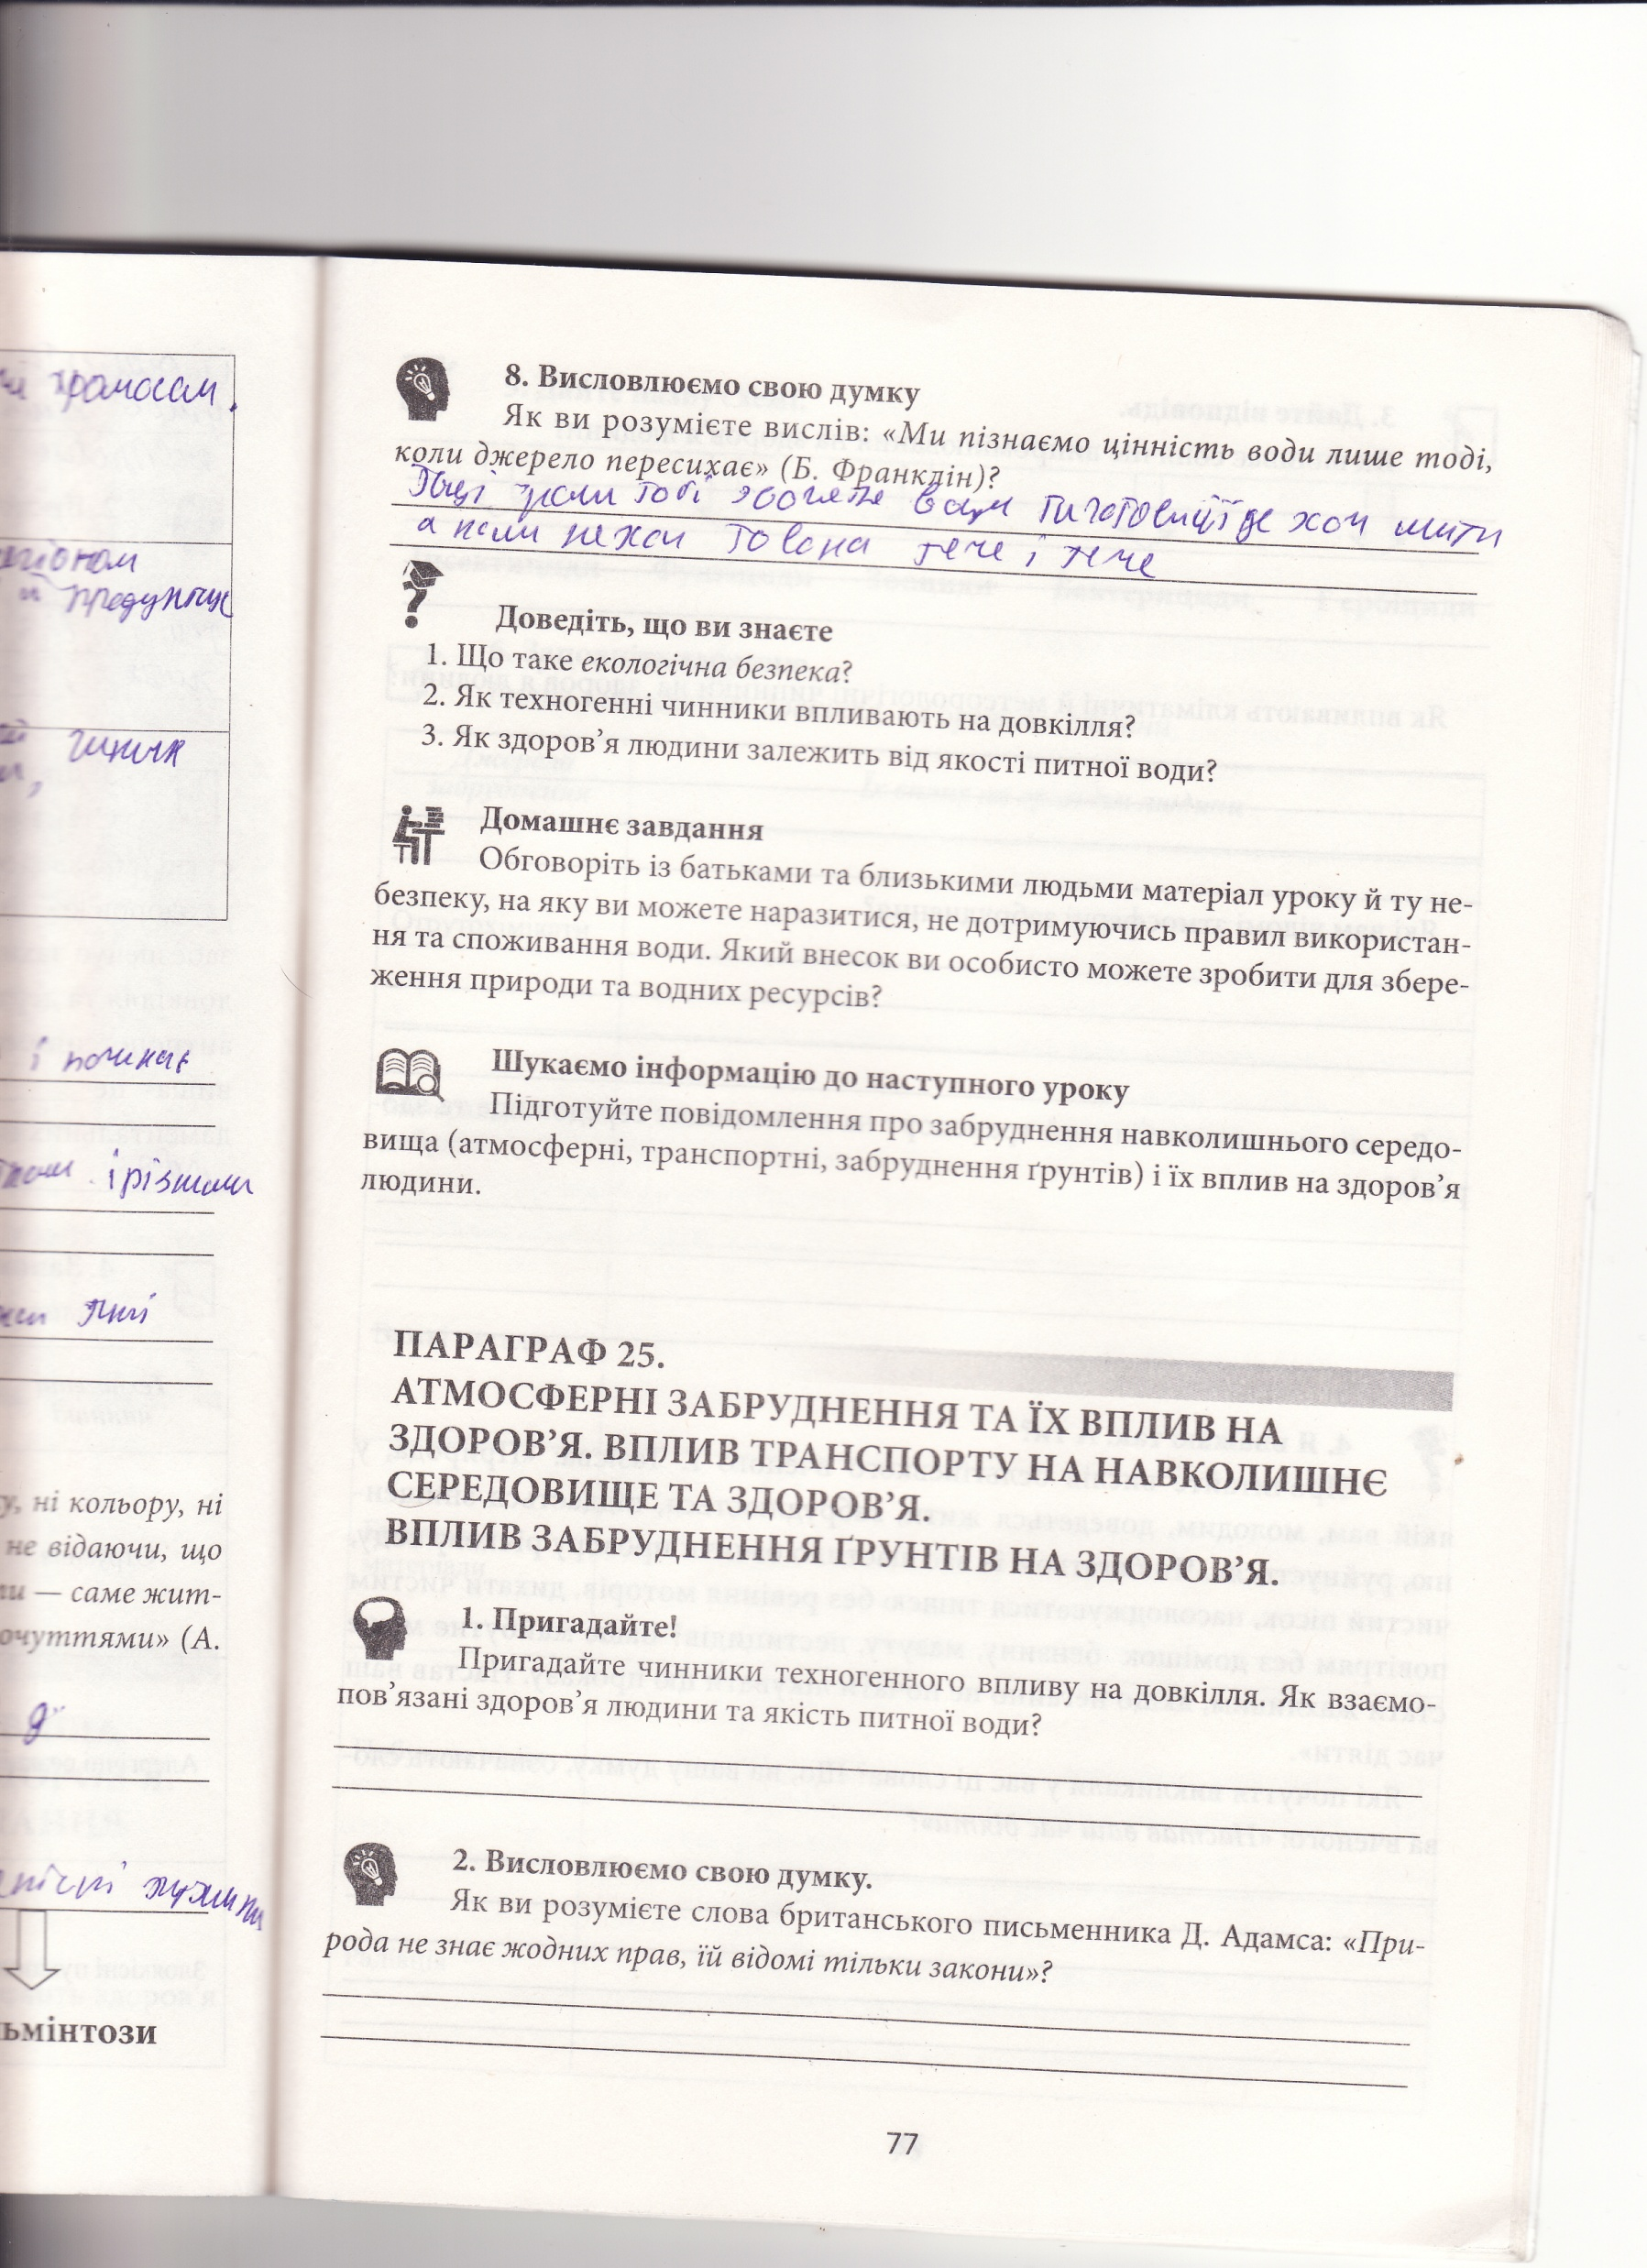 громосом.
й продукыує
чиних
і починає
і різними
пиі
у, ні кольору, ні
не відаючи, що
— саме жит-
очуттями» (А.
ьмінтози
8. Висловлюємо свою думку
Як ви розумієте вислів: «Ми пізнаємо цінність води лише тоді,
коли джерело пересихає» (Б. Франклін)?
коли тобі вам хоч жити
а коли не хоч то вона тече і тече
Доведіть, що ви знаєте
1. Що таке екологічна безпека?
2. Як техногенні чинники впливають на довкілля?
3. Як здоров’я людини залежить від якості питної води?
Домашнє завдання
Обговоріть із батьками та близькими людьми матеріал уроку й ту не-
безпеку, на яку ви можете наразитися, не дотримуючись правил використан-
ня та споживання води. Який внесок ви особисто можете зробити для збере-
ження природи та водних ресурсів?
Шукаємо інформацію до наступного уроку
Підготуйте повідомлення про забруднення навколишнього середо-
вища (атмосферні, транспортні, забруднення ґрунтів) і їх вплив на здоров’я
людини.
ПАРАГРАФ 25.
АТМОСФЕРНІ ЗАБРУДНЕННЯ ТА ЇХ ВПЛИВ НА
ЗДОРОВ’Я. ВПЛИВ ТРАНСПОРТУ НА НАВКОЛИШНЄ
СЕРЕДОВИЩЕ ТА ЗДОРОВ’Я.
ВПЛИВ ЗАБРУДНЕННЯ ҐРУНТІВ НА ЗДОРОВ’Я.
1. Пригадайте!
Пригадайте чинники техногенного впливу на довкілля. Як взаємо-
пов’язані здоров’я людини та якість питної води?
2. Висловлюємо свою думку.
Як ви розумієте слова британського письменника Д. Адамса: «При-
рода не знає жодних прав, їй відомі тільки закони»?
77